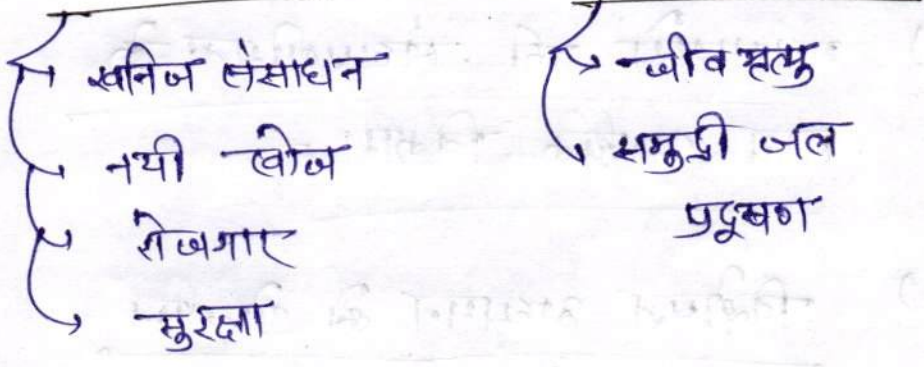 खनिज संसाधन
नयी खोज
रोजगार
सुरक्षा
जीव मृत्यु
समुद्री जल
प्रदूषण